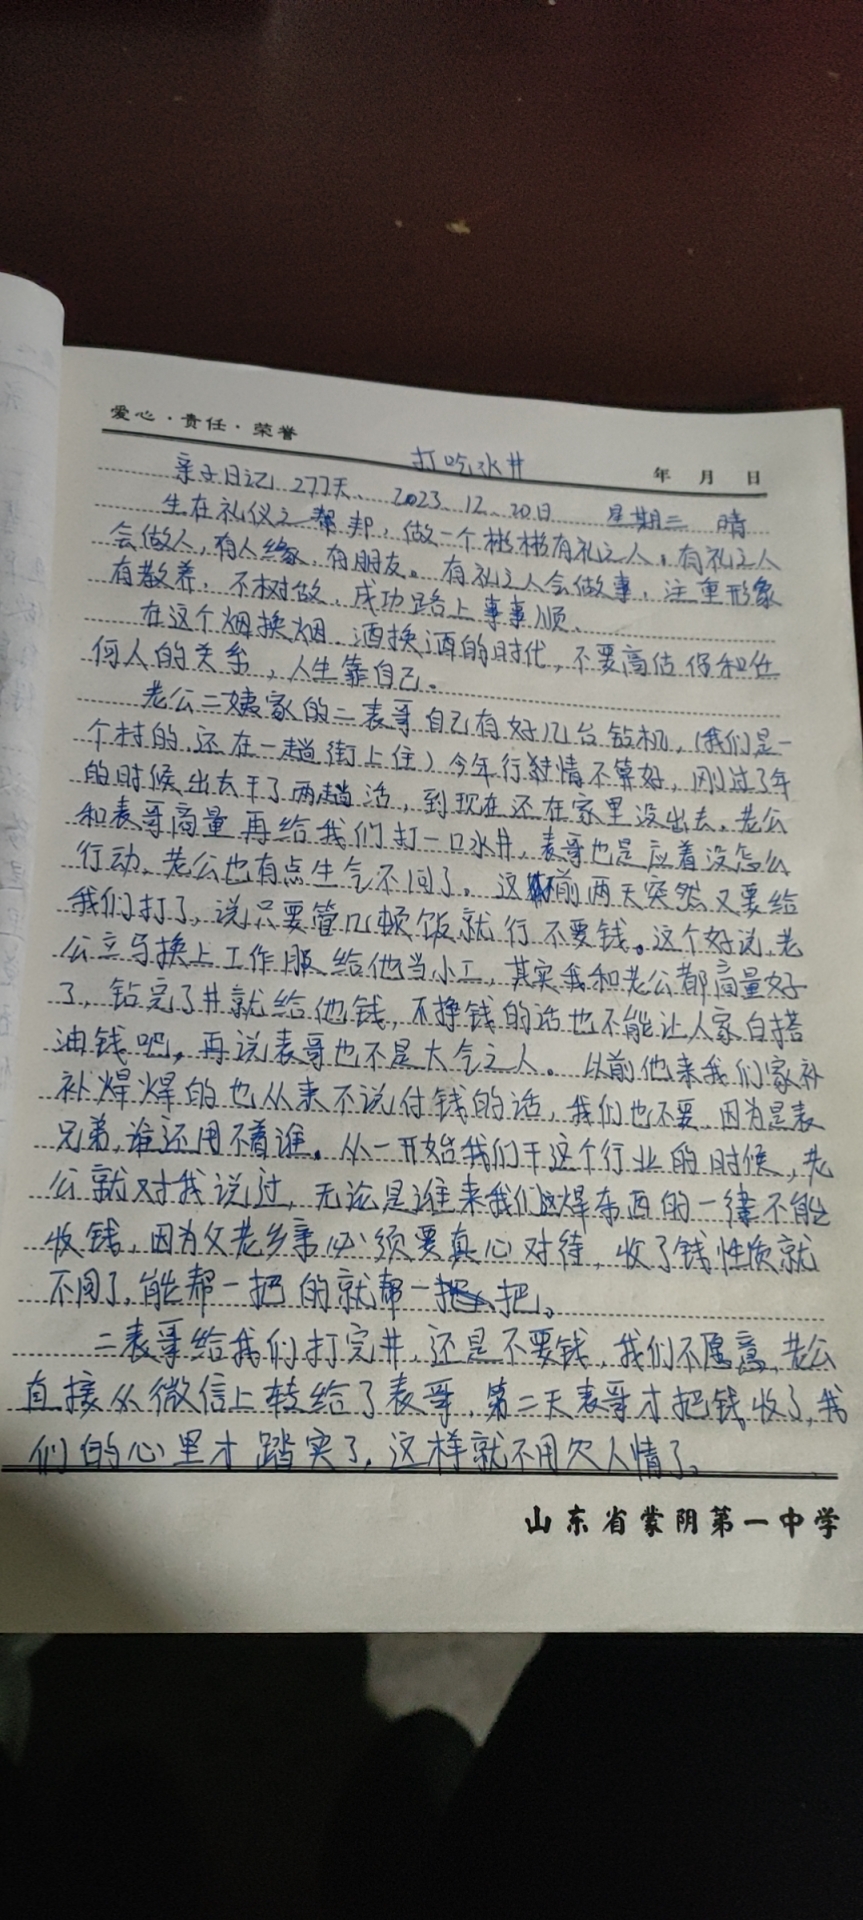 爱心·责任·荣誉
打吃水井
年 月 日
亲子日记 277天、 2023.12.20日 星期三 晴
生在礼仪之邦,做一个彬彬有礼之人。有礼之人
会做人,有人缘,有朋友。有礼之人会做事,注重形象
有教养,不树敌,成功路上事事顺、
在这个烟换烟、酒换酒的时代,不要高估你和任
何人的关系,人生靠自己。
老公二姨家的二表哥自己有好几台钻机,(我们是一
个村的,还在一趟街上住)今年行情不算好,刚过了年
的时候出去干了两趟活,到现在还在家里没出去。老公
和表哥商量再给我们打一口水井,表哥也是应着没怎么
行动、老公也有点生气不问了。这前两天突然又要给
我们打了,说只要管几顿饭就行不要钱。这个好说,老
公立马换上工作服给他当小工,其实我和老公都商量好
了,钻完了井就给他钱,不挣钱的话也不能让人家白搭
油钱吧,再说表哥也不是大气之人。以前他来我们家补
补焊焊的也从来不说付钱的话,我们也不要,因为是表
兄弟,谁还用不着谁。从一开始我们干这个行业的时候,老
公就对我说过,无论是谁来我们这焊东西的一律不能
收钱,因为父老乡亲必须要真心对待,收了钱性质就
不同了,能帮一把的就帮一把。
二表哥给我们打完井,还是不要钱,我们不愿意,老公
直接从微信上转给了表哥,第二天表哥才把钱收了,我
们的心里才踏实了,这样就不用欠人情了。
山东省蒙阴第一中学